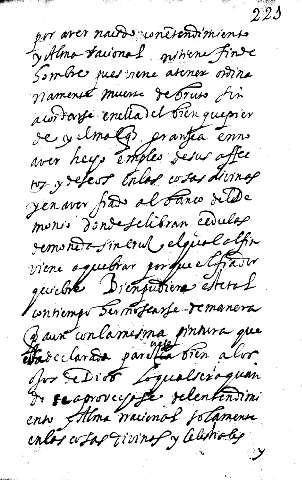 221
por aver nacido con entendimiento
y Alma racional ni tiene fin de
hombre pues viene a tener ordina
riamente muerte de bruto sin
acordarse en ella del bien que pier
de y el mal q grangea en no
aver hecho empleo de sus affec
tos y deseos en las cosas divinas
y en aver fiado al banco del De
monio donde se libran cedulas
de moneda sin cruz el qual al fin
viene a quebrar porque el fiador
quiebre Bien pudiera este tal
con tiempo hermosearse de manera
q aun con la mesma pintura que
declarada pareciesse bien a los
ojos de Dios lo qual sera quan
do se aprovechase del entendimi
ento y Alma racional solamente
en las cosas divinas y celestiales
y